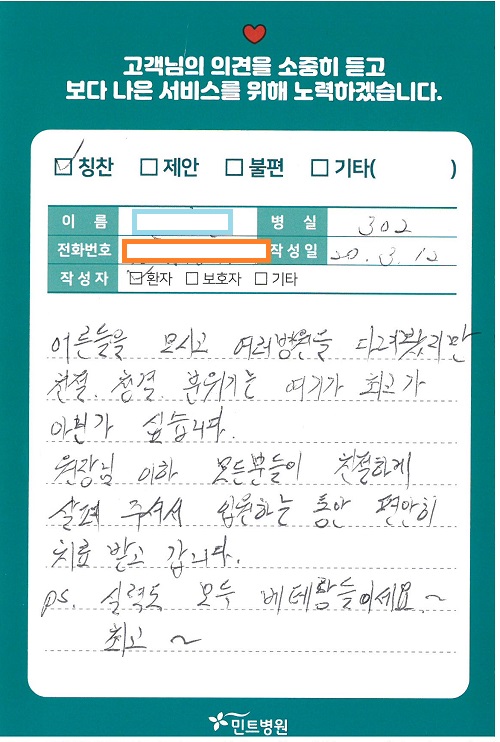 고객님의 의견을 소중히 듣고
보다 나은 서비스를 위해 노력하겠습니다.
칭찬 제안 불편 기타( )
이 름 병 실 302
전화번호 작성일 20. 3. 12
작 성 자 환자 보호자 기타
어른들을 모시고 여러병원을 다녀봤지만
친절, 청결, 분위기는 여기가 최고가
아닌가 싶습니다.
원장님 이하 모든분들이 친절하게
살펴 주셔서 입원하는 동안 편안히
치료 받고 갑니다.
ps. 실력도 모두 베테랑들이세요.~
최고 ~
민트병원